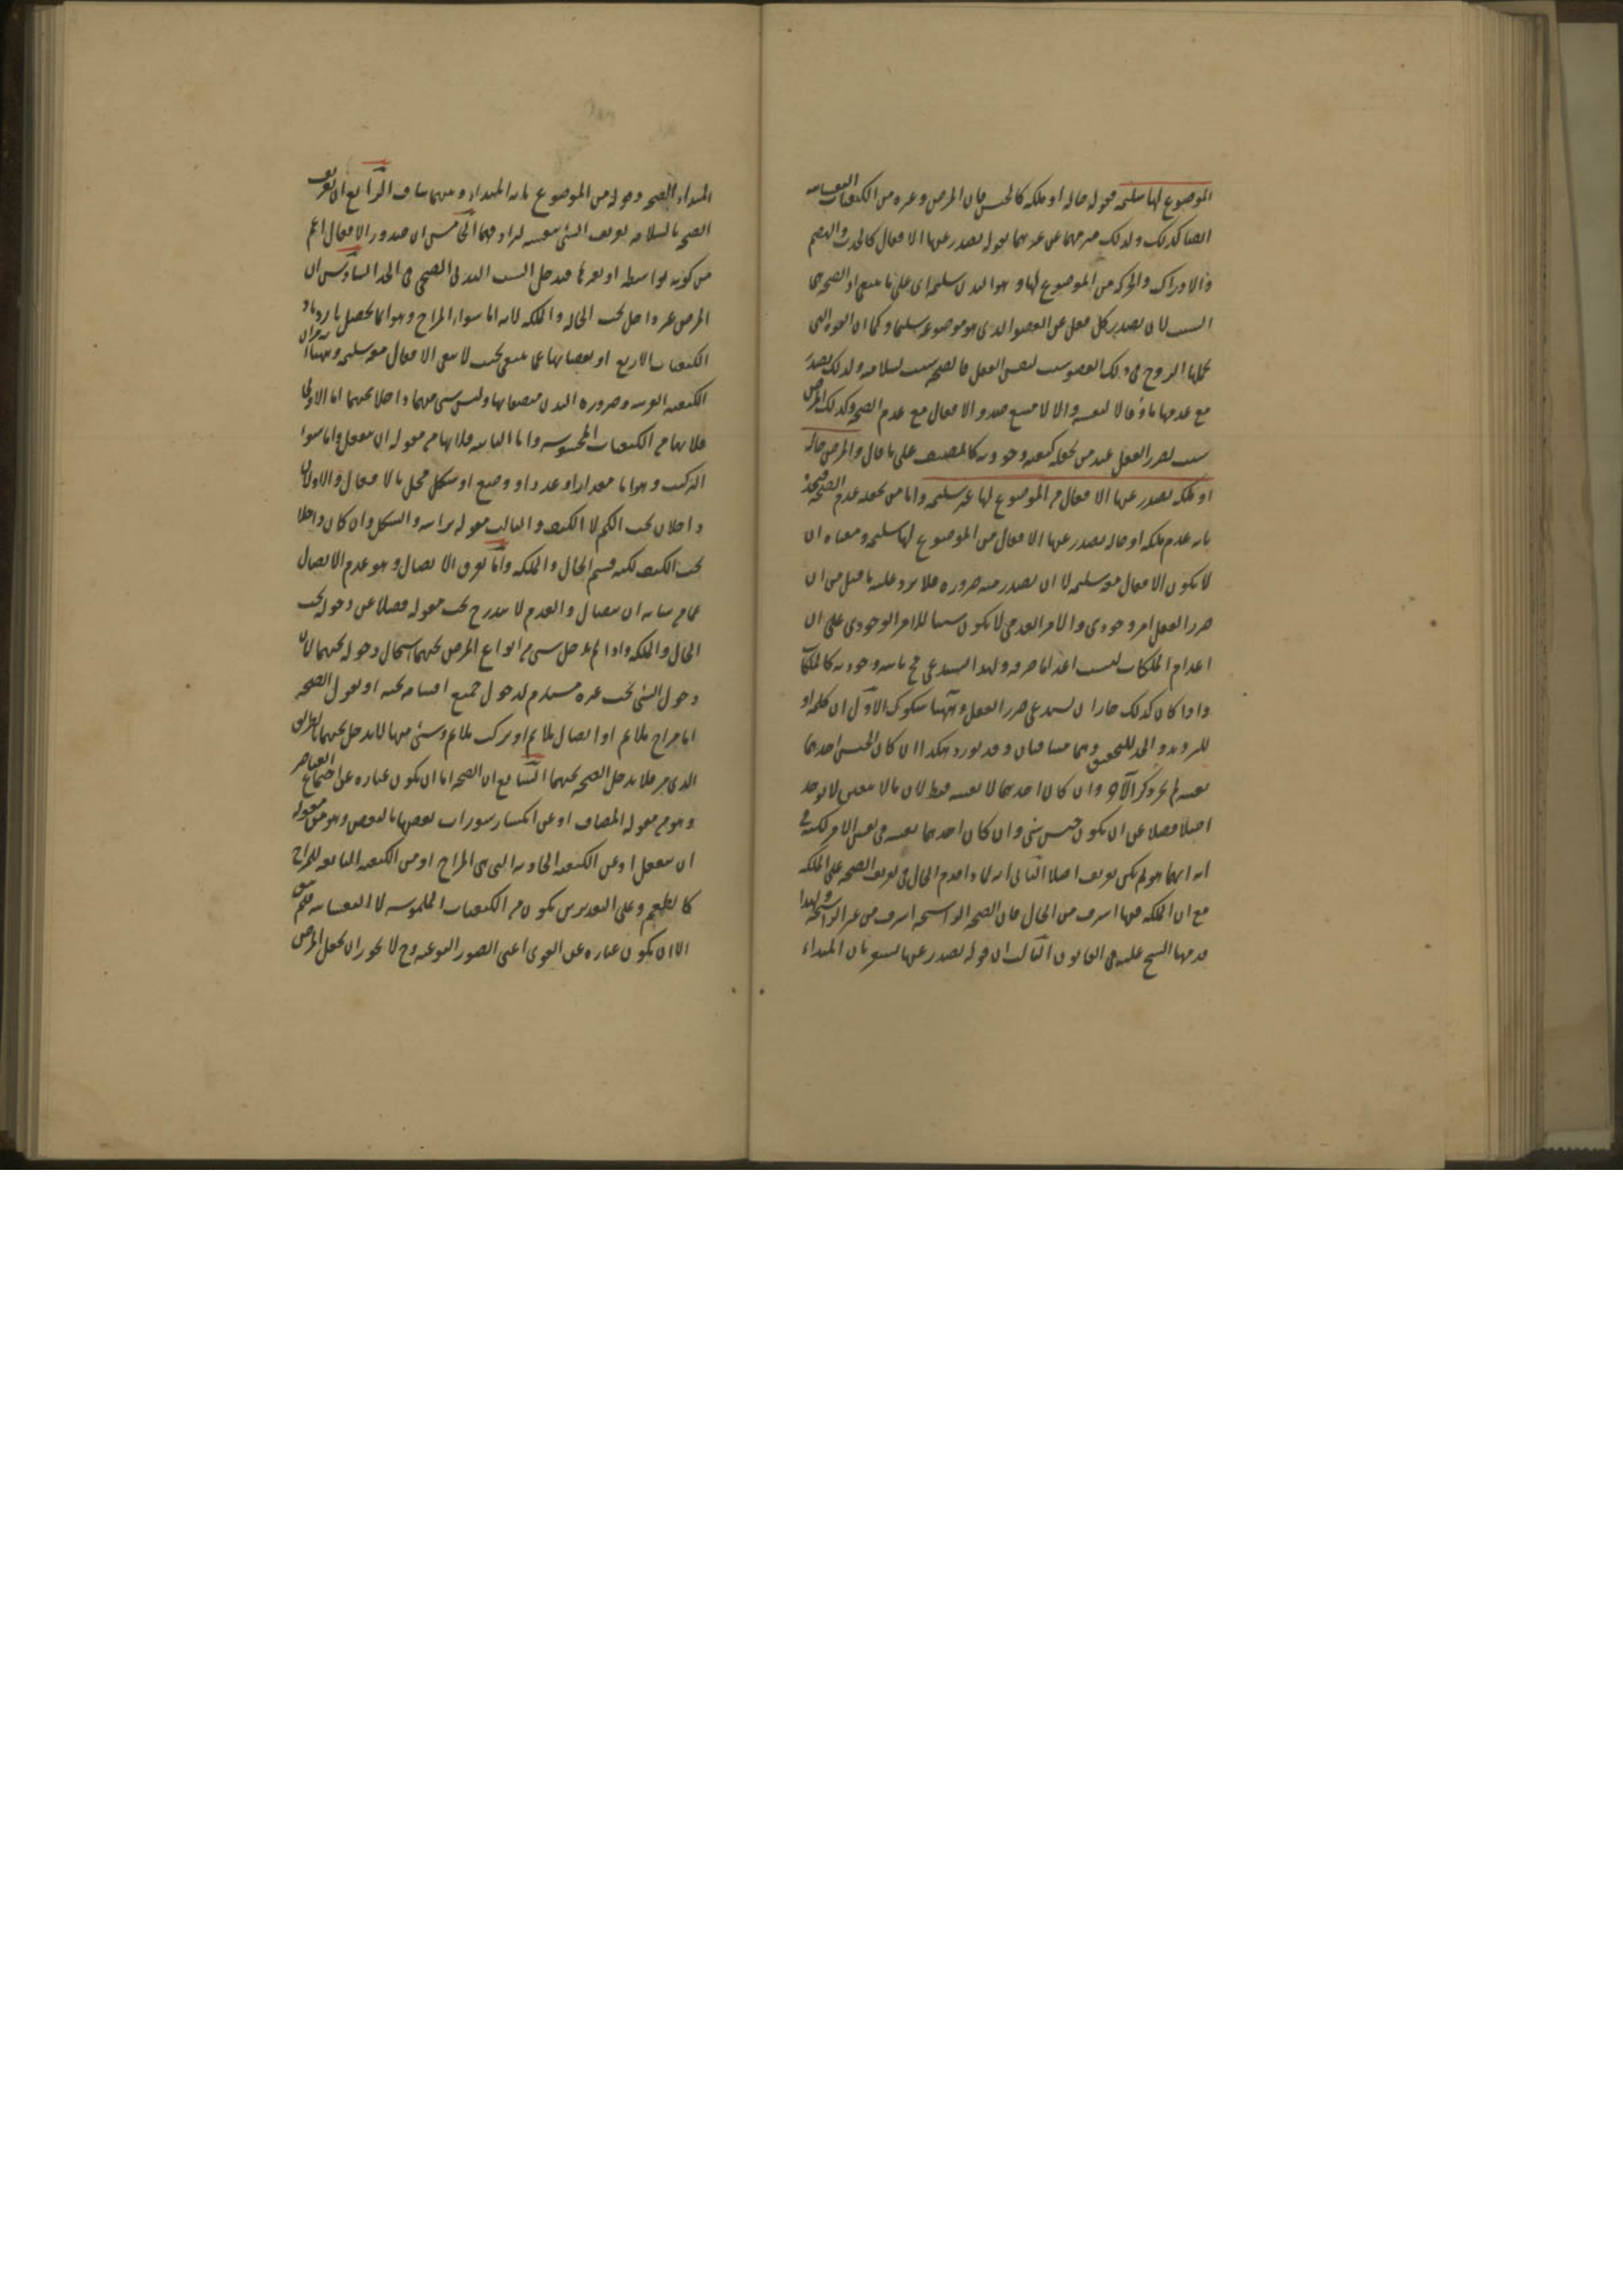 الموضوع لها سليمة فقوله حالة او ملكة كالجنس فان المرض وغيره من الكيفيات النفسانية
ايضا كذلك ولذلك ميزهما عن غيرهما بقوله يصدر عنها الافعال كالجذب والهضم
والادراك والحركة من الموضوع لها وهو البدن سليمة اى على ما ينبغى اذ الصحة هى
السبب لان يصدر كل فعل عن العضو الذى هو موضوعه سليما وكما ان القوة التى
يحملها الروح فى ذلك العضو سبب لنفس الفعل فالصحة سبب لسلامته ولذلك يصدر
مع عدمها مأوفا لا لنفسه والا لامتنع صدور الافعال مع عدم الصحة وكذلك المرض
سبب لضرر الفعل عند من يجعله كيفية وجودية كالمصنف على ما قال والمرض حالة
او ملكة يصدر عنها الافعال من الموضوع لها غير سليمة واما من يجعله عدم الصحة
بانه عدم ملكة او حالة يصدر عنها الافعال من الموضوع لها سليمة ومعناه ان
لا يكون الافعال مؤ سليمة لا ان يصدر منه ضرورة فلا يرد عليه ما قيل من ان
ضرر الفعل امر وجودى والامر العدمى لا يكون سببا للامر الوجودى على ان
اعدام الملكات ليست اعداما صرفة ولهذا يستدعى محلا ثابتا وجوديه كالملكات
واذا كان كذلك جاز ان يستدعى ضرر الفعل وههنا شكوك الاول ان كلمة او
للترديد والحد للتحقيق وهما متنافيان وقد يورد هكذا ان كان الجنس احدهما
بعينه لم يجز ذكر الآخر وان كان احدهما لا بعينه فقط لان ما لا يتعين لا يوجد
اصلا فضلا عن ان يكون جنس شئ وان كان احدهما بعينه فى نفس الامر لكنه
انه ايهما هو لم يكن تعريفا اصلا الثانى انه لماذا قدم الحال فى تعريف الصحة على الملكة
مع ان الملكة فيها اشرف من الحال فان الصحة الراسخة اشرف من غير الراسخة ولهذا
قدمها الشيخ عليه فى القانون الثالث ان قوله يصدر عنها يشعر بان المبداء
المبداء الصحة وقوله من الموضوع بانه المبداء وبينهما تناف الرابع ان تعريف
الصحة بالسلامة تعريف الشئ بنفسه لترادفهما الخامس ان صدور الافعال اعم
من كونه بواسطة او بغيرها فيدخل السبب البدنى الصحى فى الحد السادس ان
المرض غير داخل تحت الحالة والملكة لانه اما سوء المزاج وهو انما يحصل بازدياد
الكيفيات الاربع او نقصانها عما ينبغى بحيث لا يبقى الافعال معه سليمة وههنا امران
الكيفية الغريبة وصيرورة البدن متصفا بها وليس شئ منهما داخلا تحتهما اما الاولى
فلانها من الكيفيات المحسوسة واما الثانية فلانها من مقولة ان ينفعل واما سوء
التركيب وهو اما مقدار او عدد او وضع او شكل مخل بالافعال والاولان
داخلان تحت الكم لا الكيف والثالث مقولة براسه والشكل وان كان داخلا
تحت الكيف لكنه قسيم الحال والملكة واما تفرق الاتصال وهو عدم الاتصال
عما من شانه ان يتصل والعدم لا يندرج تحت مقولة فضلا عن دخوله تحت
الحال والملكة واذا لم يدخل شئ من انواع المرض تحتهما استحال دخوله تحتهما لان
دخول الشئ تحت غيره مستلزم لدخول جميع اقسامه تحته او نقول الصحة
اما مزاج ملائم او اتصال ملائم او تركيب ملائم وشئ منها لا يدخل تحتهما بالطريق
الذى مر فلا يدخل الصحة تحتهما السابع ان الصحة اما ان يكون عبارة عن اجتماع العناصر
وهو من مقولة المضاف او عن انكسار سورات بعضها بالبعض وهو من مقولة
ان ينفعل او عن الكيفية الحادثة التى هى المزاج او من الكيفية التابعة للمزاج
كالطعم وعلى التقديرين يكون من الكيفيات الملموسة لا النفسانية فلم يبق
الا ان يكون عبارة عن القوى اعنى الصور النوعية وح لا يجوز ان يجعل المرض